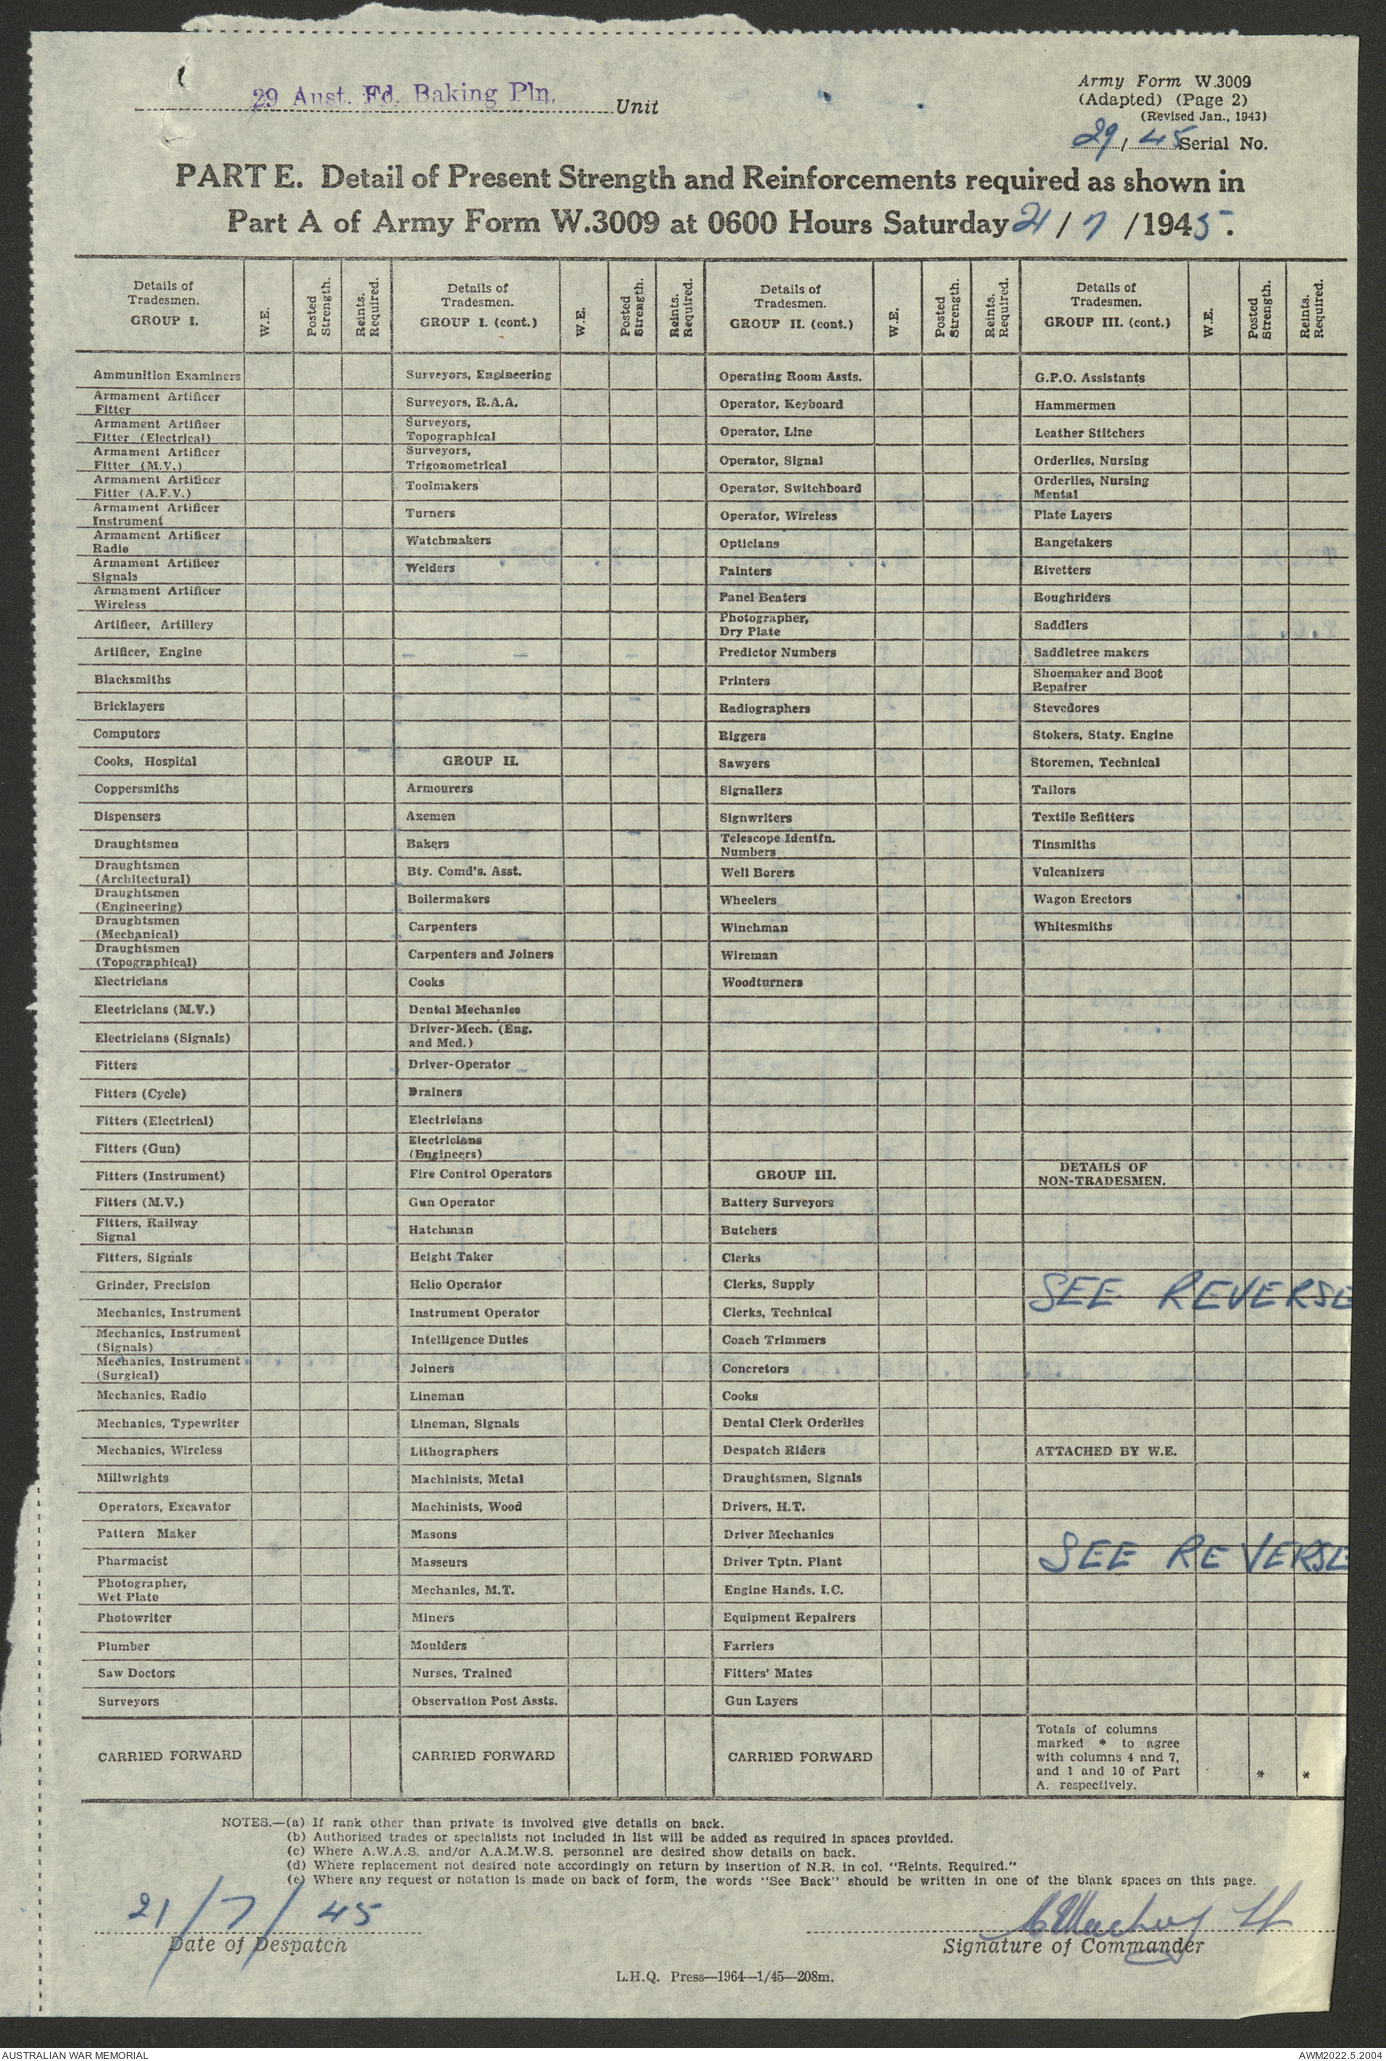 29 Aust. Fd. Baking Pln. Unit
Army Form W.3009
(Adapted) (Page 2)
(Revised Jan., 1943)
29/45 Serial No.
PART E. Detail of Present Strength and Reinforcements required as shown in
Part A of Army Form W.3009 at 0600 Hours Saturday 21/7/1945.
Details of Tradesmen. GROUP I.
W.E.
Posted Strength.
Reints. Required.
Ammunition Examiners
Armament Artificer
Fitter
Armament Artificer
Fitter (Electrical)
Armament Artificer
Fitter (M.V.)
Armament Artificer
Fitter (A.F.V.)
Armament Artificer
Instrument
Armament Artificer
Radio
Armament Artificer
Signals
Armament Artificer
Wireless
Artificer, Artillery
Artificer, Engine
Blacksmiths
Bricklayers
Computors
Cooks, Hospital
Coppersmiths
Dispensers
Draughtsmen
Draughtsmen
(Architectural)
Draughtsmen
(Engineering)
Draughtsmen
(Mechanical)
Draughtsmen
(Topographical)
Electricians
Electricians (M.V.)
Electricians (Signals)
Fitters
Fitters (Cycle)
Fitters (Electrical)
Fitters (Gun)
Fitters (Instrument)
Fitters (M.V.)
Fitters, Railway
Signal
Fitters, Signals
Grinder, Precision
Mechanics, Instrument
Mechanics, Instrument
(Signals)
Mechanics, Instrument
(Surgical)
Mechanics, Radio
Mechanics, Typewriter
Mechanics, Wireless
Millwrights
Operators, Excavator
Pattern Maker
Pharmacist
Photographer,
Wet Plate
Photowriter
Plumber
Saw Doctors
Surveyors
CARRIED FORWARD
Details of Tradesmen. GROUP I. (cont.)
W.E.
Posted Strength.
Reints. Required.
Surveyors, Engineering
Surveyors, R.A.A.
Surveyors,
Topographical
Surveyors,
Trigonometrical
Toolmakers
Turners
Watchmakers
Welders
GROUP II.
Armourers
Axemen
Bakers
Bty. Comd's. Asst.
Boilermakers
Carpenters
Carpenters and Joiners
Cooks
Dental Mechanics
Driver-Mech. (Eng.
and Med.)
Driver-Operator
Drainers
Electricians
Electricians
(Engineers)
Fire Control Operators
Gun Operator
Hatchman
Height Taker
Helio Operator
Instrument Operator
Intelligence Duties
Joiners
Lineman
Lineman, Signals
Lithographers
Machinists, Metal
Machinists, Wood
Masons
Masseurs
Mechanics, M.T.
Miners
Moulders
Nurses, Trained
Observation Post Assts.
CARRIED FORWARD
Details of Tradesmen. GROUP II. (cont.)
W.E.
Posted Strength.
Reints. Required.
Operating Room Assts.
Operator, Keyboard
Operator, Line
Operator, Signal
Operator, Switchboard
Operator, Wireless
Opticians
Painters
Panel Beaters
Photographer,
Dry Plate
Predictor Numbers
Printers
Radiographers
Riggers
Sawyers
Signallers
Signwriters
Telescope Identfn.
Numbers
Well Borers
Wheelers
Winchman
Wireman
Woodturners
GROUP III.
Battery Surveyors
Butchers
Clerks
Clerks, Supply
Clerks, Technical
Coach Trimmers
Concretors
Cooks
Dental Clerk Orderlies
Despatch Riders
Draughtsmen, Signals
Drivers, H.T.
Driver Mechanics
Driver Tptn. Plant
Engine Hands, I.C.
Equipment Repairers
Farriers
Fitters' Mates
Gun Layers
CARRIED FORWARD
Details of Tradesmen. GROUP III. (cont.)
W.E.
Posted Strength.
Reints. Required.
G.P.O. Assistants
Hammermen
Leather Stitchers
Orderlies, Nursing
Orderlies, Nursing
Mental
Plate Layers
Rangetakers
Rivetters
Roughriders
Saddlers
Saddletree makers
Shoemaker and Boot
Repairer
Stevedores
Stokers, Staty. Engine
Storemen, Technical
Tailors
Textile Refitters
Tinsmiths
Vulcanizers
Wagon Erectors
Whitesmiths
DETAILS OF
NON-TRADESMEN.
SEE REVERSE
ATTACHED BY W.E.
SEE REVERSE
Totals of columns
marked * to agree
with columns 4 and 7,
and 1 and 10 of Part
A. respectively.
* *
NOTES.—(a) If rank other than private is involved give details on back.
(b) Authorised trades or specialists not included in list will be added as required in spaces provided.
(c) Where A.W.A.S. and/or A.A.M.W.S. personnel are desired show details on back.
(d) Where replacement not desired note accordingly on return by insertion of N.R. in col. "Reints. Required."
(e) Where any request or notation is made on back of form, the words "See Back" should be written in one of the blank spaces on this page.
21/7/45
Date of Despatch
Lt
Signature of Commander
L.H.Q. Press—1964—1/45—208m.
AUSTRALIAN WAR MEMORIAL
AWM2022.5.2004